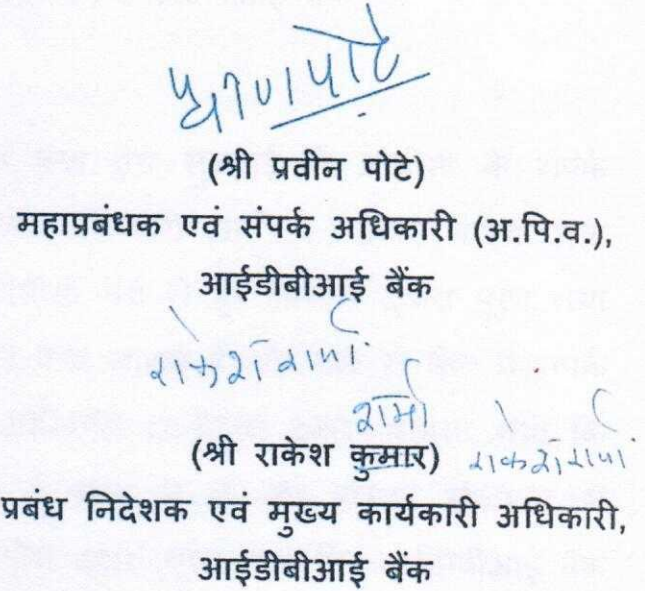 प्रवीण पोटे
(श्री प्रवीन पोटे)
महाप्रबंधक एवं संपर्क अधिकारी (अ.पि.व.),
आईडीबीआई बैंक
राकेश शर्मा
शर्मा
(श्री राकेश कुमार) राकेश शर्मा
प्रबंध निदेशक एवं मुख्य कार्यकारी अधिकारी,
आईडीबीआई बैंक